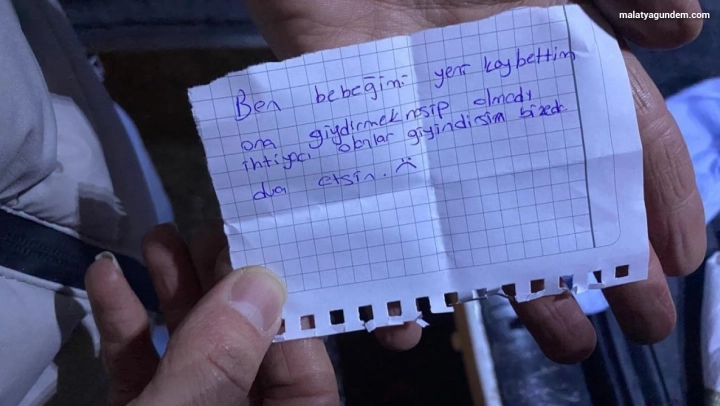 malatyagundem.com
Ben bebeğimi yeni kaybettim
ona giydirmek nasip olmadı
ihtiyacı olanlar giyindirsin bizede
dua etsin.